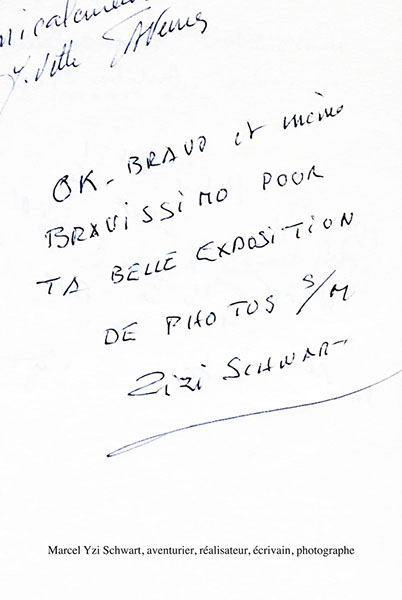 OK - BRAVO et même
BRAVISSIMO POUR
TA BELLE EXPOSITION
DE PHOTOS S/M
Zizi SCHWART
Marcel Yzi Schwart, aventurier, réalisateur, écrivain, photographe